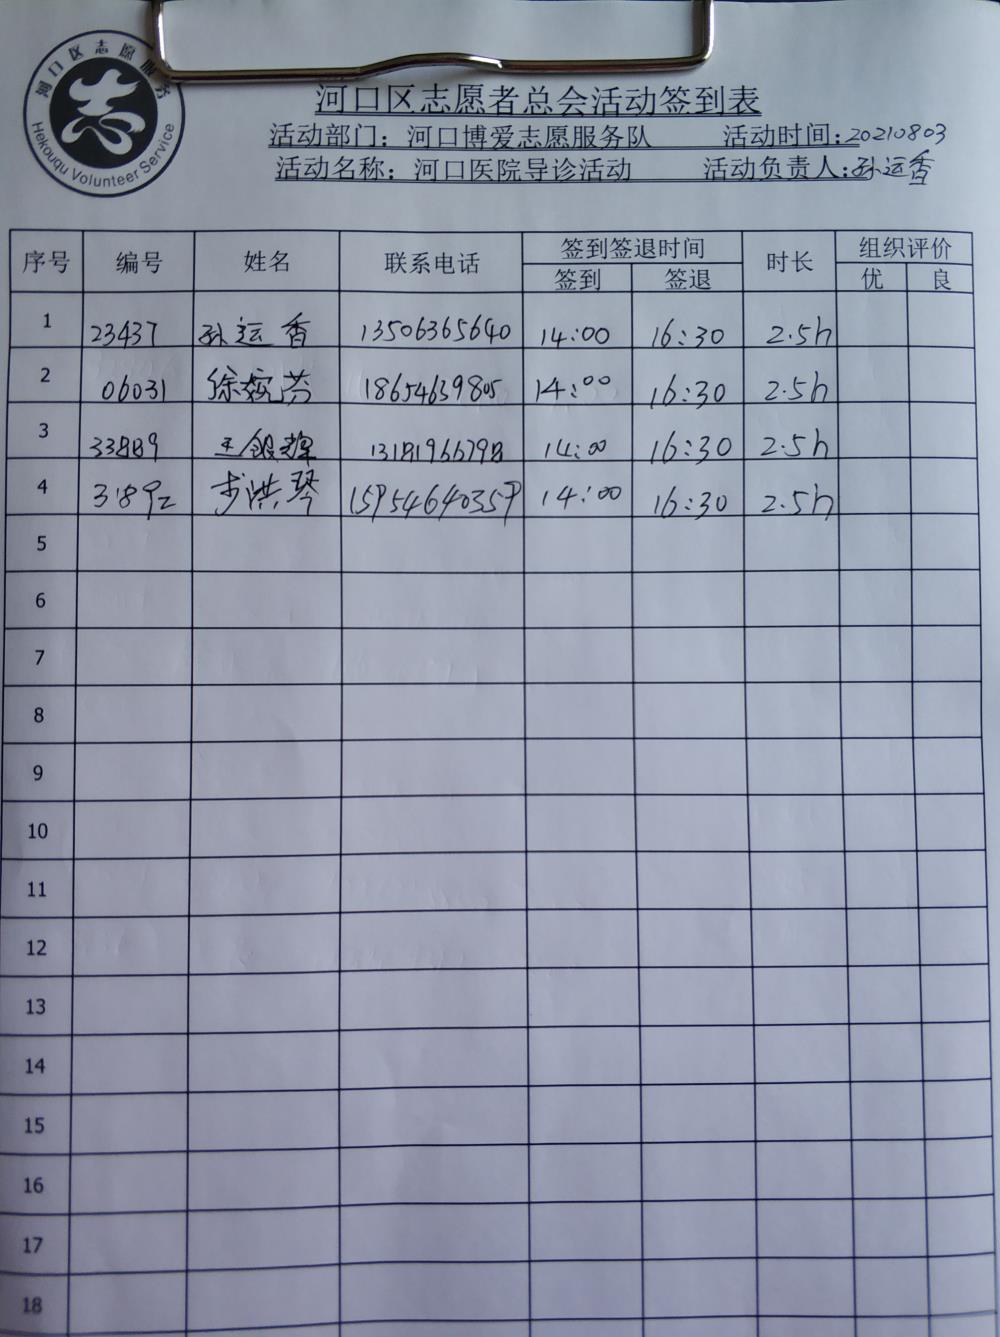 河口区志愿服务
Hekouqu Volunteer Service
河口区志愿者总会活动签到表
活动部门：河口博爱志愿服务队 活动时间:20210803
活动名称：河口医院导诊活动 活动负责人:孙运香
序号 编号 姓名 联系电话 签到签退时间 时长 组织评价
签到 签退 优 良
1 23437 孙运香 13506365640 14:00 16:30 2.5h
2 06031 徐婉芬 18654639805 14:00 16:30 2.5h
3 33889 王银辉 13181966798 14:00 16:30 2.5h
4 31892 步洪琴 15954640359 14:00 16:30 2.5h
5
6
7
8
9
10
11
12
13
14
15
16
17
18